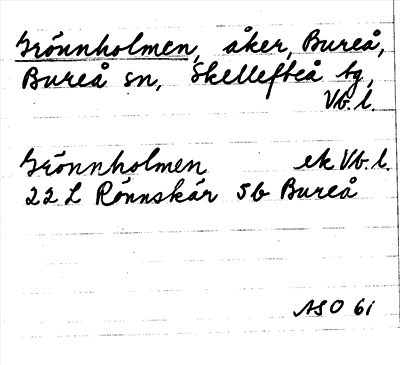 Grönnholmen, åker, Bureå,
Bureå sn, Skellefteå tg,
Vb. l.
Grönnholmen ek Vb. l.
22 L Rönnskär 5b Bureå
ASO 61